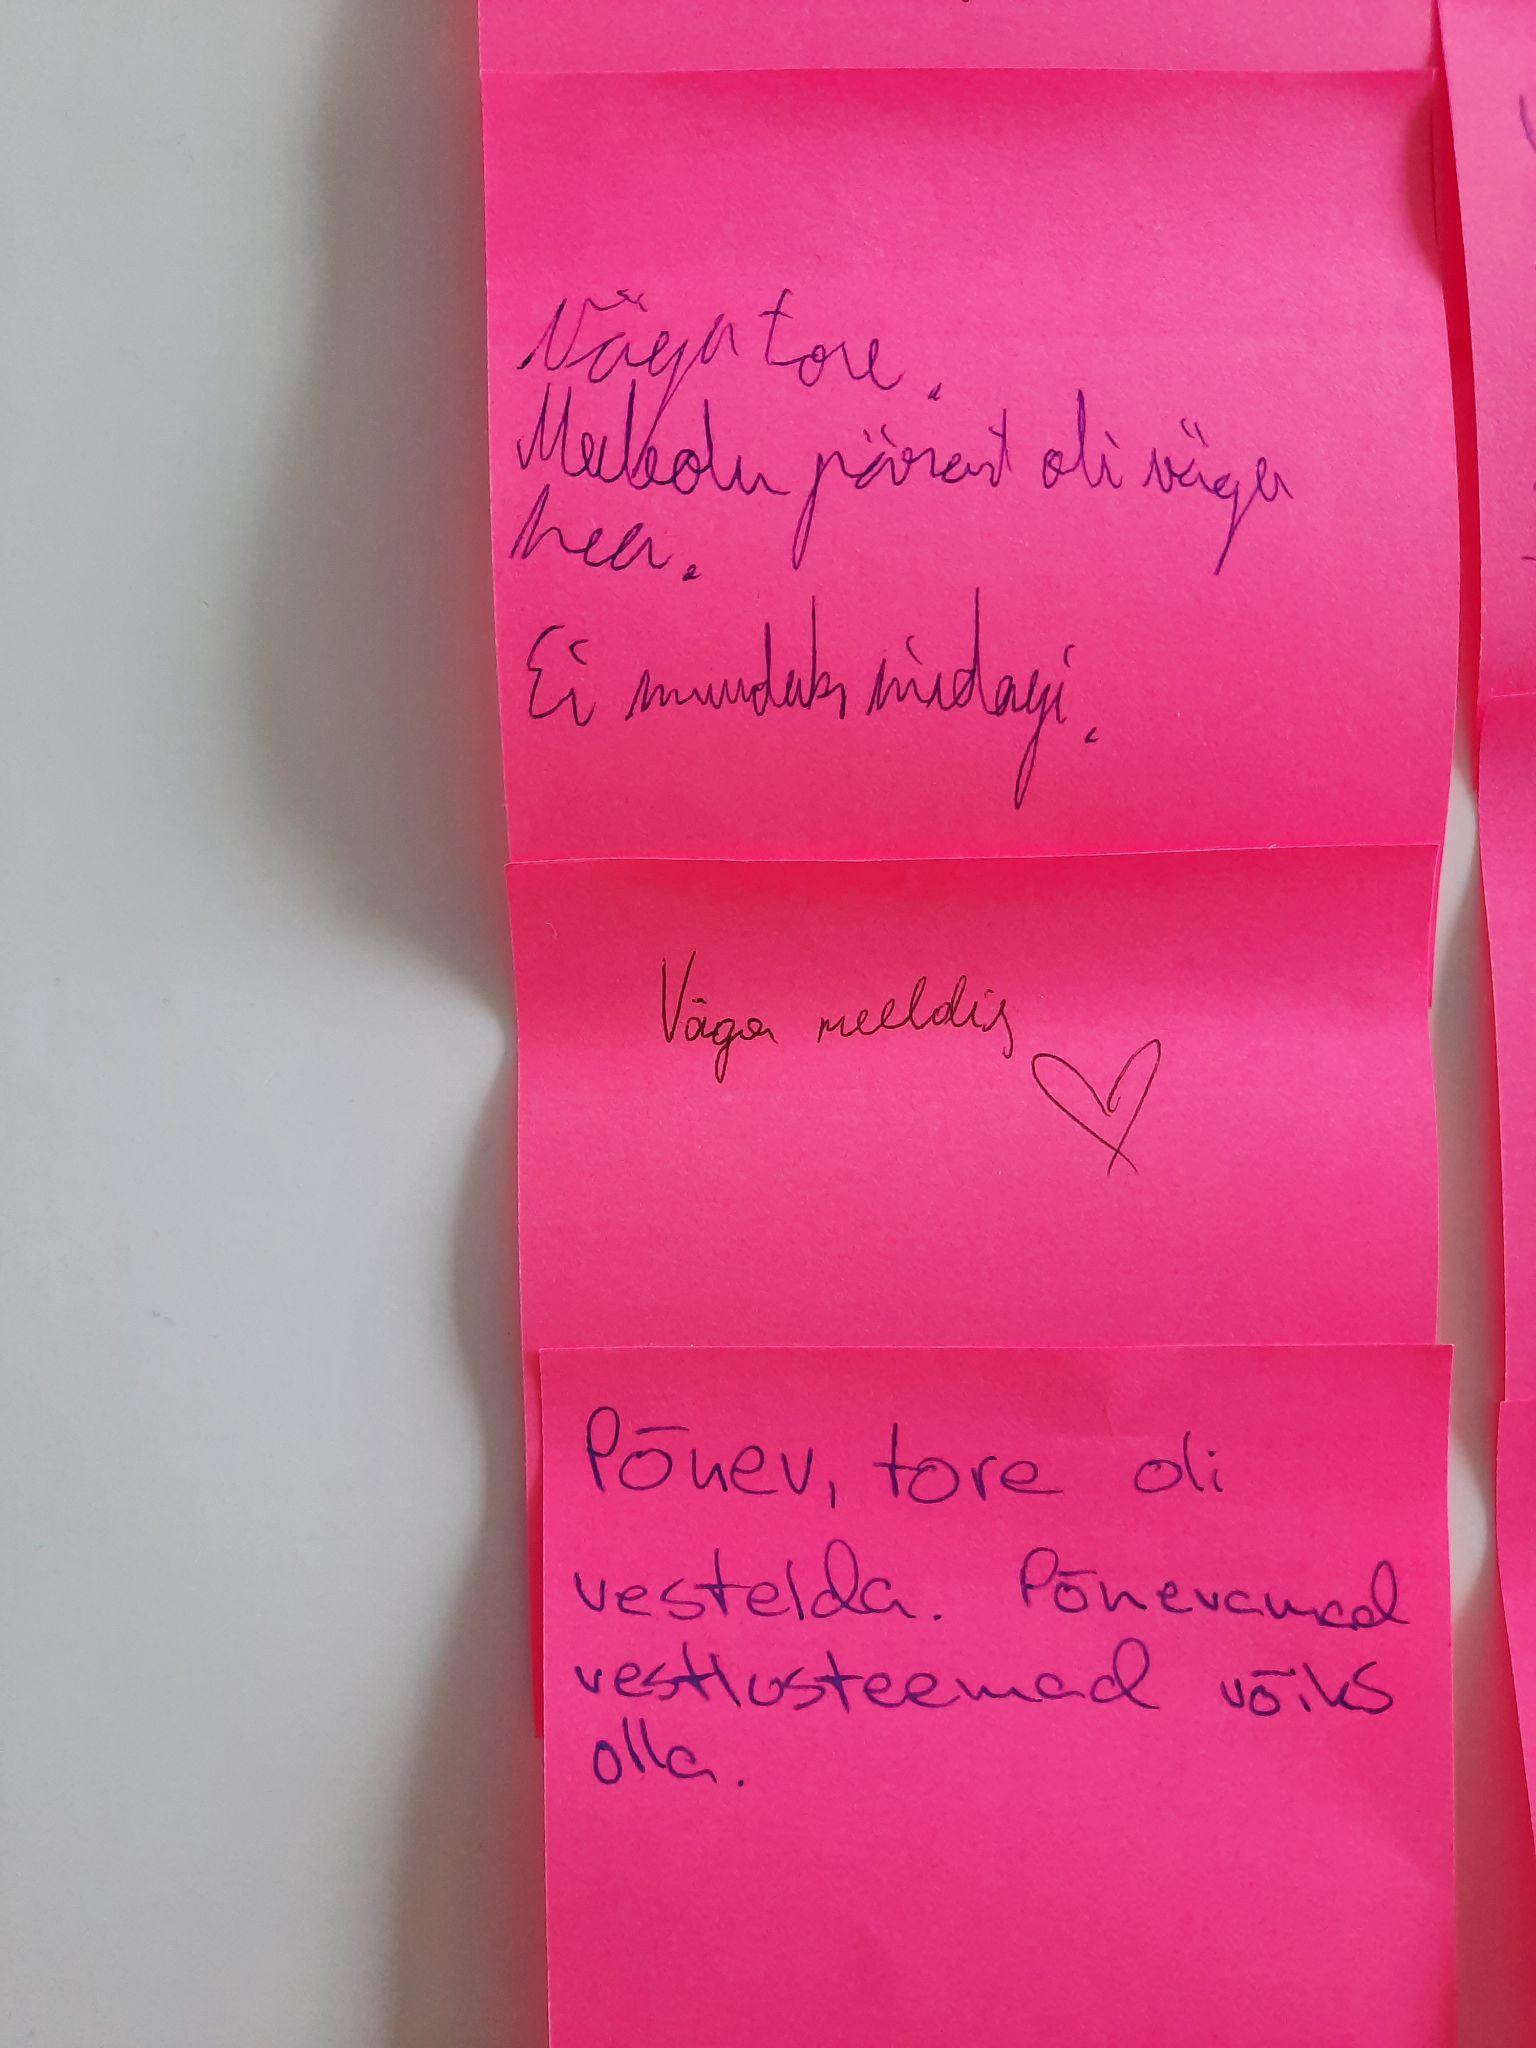 Väga tore.
pärast oli väga
hea.
Ei muudaks midagi.
Väga meeldis
Põnev, tore oli
vestelda. Põnevamad
vestlusteemad võiks
olla.